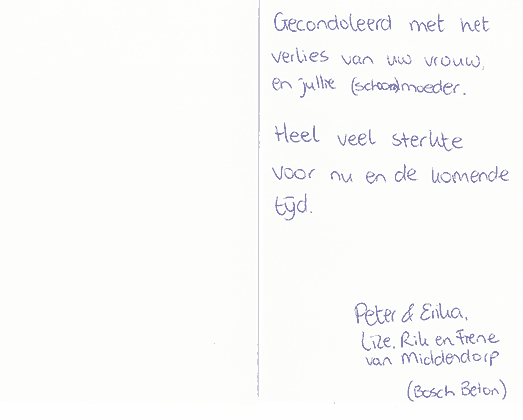 Gecondoleerd met het
verlies van uw vrouw,
en jullie (schoon)moeder.
Heel veel sterkte
voor nu en de komende
tijd.
Peter & Erika,
Lize, Rik en Frene
van Middendorp
(Bosch Beton)